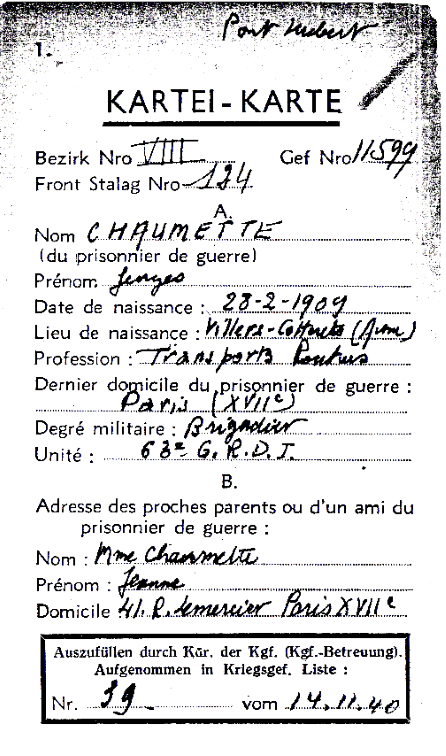 Pont Hubert
1.
KARTEI-KARTE
Bezirk Nro VIII Gef Nro 11599
Front Stalag Nro 124
A.
Nom CHAUMETTE
(du prisonnier de guerre)
Prénom
Date de naissance : 28-2-1909
Lieu de naissance : Villers-Cotterêts (Aisne)
Profession : Transports
Dernier domicile du prisonnier de guerre :
Paris (XVIIe)
Degré militaire : Brigadier
Unité : 63e G.R.D.I.
B.
Adresse des proches parents ou d'un ami du
prisonnier de guerre :
Nom : Mme Chaumette
Prénom : Jeanne
Domicile 41. R. Lemercier Paris XVIIe
Auszufüllen durch Kür. der Kgf. (Kgf.-Betreuung).
Aufgenommen in Kriegsgef. Liste :
Nr. 39 vom 14.11.40